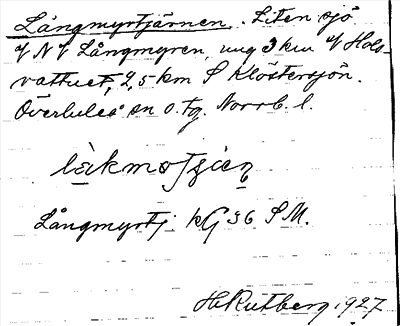 Långmyrtjärnen. Liten sjö
V N V Långmyren, ung 3 km V Hols-
vattnet, 2,5 km S Klöstersjön.
Överluleå sn o. tg. Norrb. l.
Långmyrtj. kG 36 S M.
H Rutberg 1927